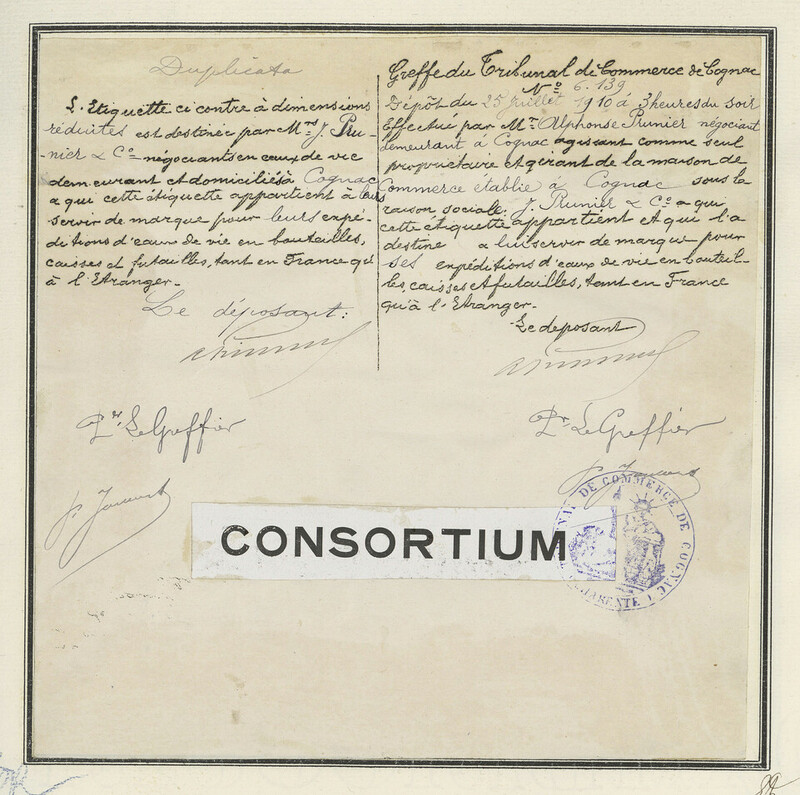 Duplicata
L'Etiquette ci contre à dimensions
réduites est destinée par Mrs J. Pru-
nier & Co négociants en eaux de vie
demeurant et domiciliés à Cognac
a qui cette étiquette appartient à leurs
servir de marque pour leurs expé-
ditions d'eaux de vie en boutailles,
caisses et futailles, tant en France qu'
à l'Etranger.
Le déposant:
Pr. Le Greffier
Greffe du Tribunal de Commerce de Cognac
No 6.139
Dépôt du 25 Juillet 1910 à 3 heures du soir
Effectué par Mr. Alphonse Prunier négociant
demeurant à Cognac agissant comme seul
propriétaire et gérant de la maison de
Commerce établie à Cognac sous la
raison sociale: J. Prunier & Co a qui
cette étiquette appartient et qui l'a
destine a lui servir de marque pour
ses expéditions d'eaux de vie en bouteil-
les, caisses et futailles, tant en France
qu'à l'Etranger.
Le deposant
Pr. Le Greffier
CONSORTIUM
TRIBUNAL DE COMMERCE DE COGNAC
CHARENTE